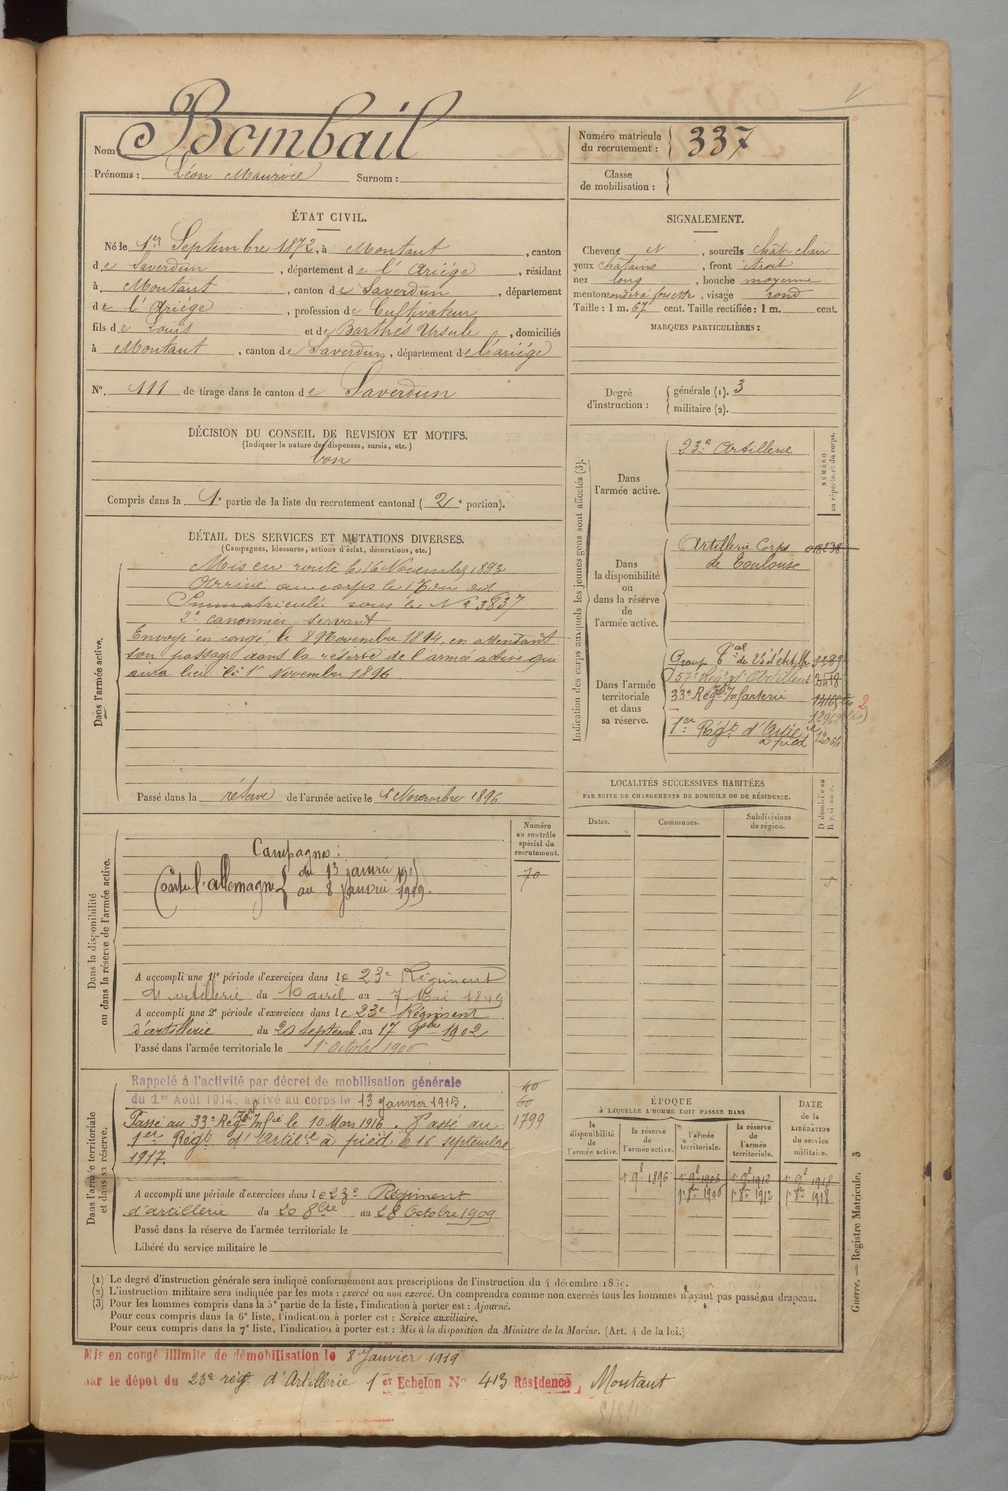 Nom : Bombail
Prénoms : Léon Maurice Surnom :
Numéro matricule
du recrutement : 337
Classe
de mobilisation :
ÉTAT CIVIL.
Né le 1er Septembre 1872, à Montaut, canton
de Saverdun, département de l'Ariége, résidant
à Montaut, canton de Saverdun, département
de l'Ariége, profession de Cultivateur
fils de Louis et de Barthès Ursule, domiciliés
à Montaut, canton de Saverdun, département de l'ariége
N° 111 de tirage dans le canton de Saverdun
DÉCISION DU CONSEIL DE REVISION ET MOTIFS.
(Indiquer la nature des dispenses, sursis, etc.)
bon
Compris dans la 1e partie de la liste du recrutement cantonal (2e portion).
SIGNALEMENT.
Cheveux N, sourcils chât. clair
yeux châtains, front étroit
nez long, bouche moyenne
menton rond à fossette, visage rond
Taille : 1 m. 67 cent. Taille rectifiée : 1 m. cent.
MARQUES PARTICULIÈRES :
Degré
d'instruction :
générale (1). 3
militaire (2).
DÉTAIL DES SERVICES ET MUTATIONS DIVERSES.
(Campagnes, blessures, actions d'éclat, décorations, etc.)
Dans l'armée active.
Mis en route le 16 Novembre 1893
Arrivé au corps le 17 du dit
Immatriculé sous le N° 3837
2e canonnier servant
Envoyé en congé, le 8 Novembre 1894, en attendant
son passage dans la réserve de l'armée active qui
aura lieu le 1er Novembre 1896
Passé dans la réserve de l'armée active le 1er Novembre 1896
Indication des corps auxquels les jeunes gens sont affectés (3).
NUMÉRO
au répertoire du corps.
Dans
l'armée active.
23e Artillerie
Dans
la disponibilité
ou
dans la réserve
de
l'armée active.
Artillerie Corps
de Toulouse
Dans l'armée
territoriale
et dans
sa réserve.
Group tal du 23 d'Artillie
57e Rég. d'Artillerie
33e Rég. Infanterie
1er Régt d'Artie
à pied
LOCALITÉS SUCCESSIVES HABITÉES
PAR SUITE DE CHANGEMENTS DE DOMICILE OU DE RÉSIDENCE.
D domicile ou
R résidence.
Dates.
Communes.
Subdivisions
de région.
Dans la disponibilité
ou dans la réserve de l'armée active.
Numéro
au contrôle
spécial du
recrutement.
70
Campagne :
Contre l'allemagne
du 13 janvier 1915
au 8 Janvier 1919.
A accompli une 1re période d'exercices dans le 23e Régiment
d'artillerie du 10 avril au 7 Mai 1899
A accompli une 2e période d'exercices dans le 23e Régiment
d'artillerie du 20 Septemb. au 17 8bre 1902
Passé dans l'armée territoriale le 1er Octobre 1906
Dans l'armée territoriale
et dans sa réserve.
Rappelé à l'activité par décret de mobilisation générale
du 1er Août 1914, arrivé au corps le 13 Janvier 1915.
Passé au 33e Régt Infie le 10 Mars 1916. Passé au
1er Régt d'Artie à pied le 16 septembre
1917.
40
60
1799
A accompli une période d'exercices dans le 23e Régiment
d'artillerie du 20 8bre au 28 Octobre 1909
Passé dans la réserve de l'armée territoriale le
Libéré du service militaire le
ÉPOQUE
À LAQUELLE L'HOMME DOIT PASSER DANS
DATE
de la
LIBÉRATION
du service
militaire.
la
disponibilité
de
l'armée active.
la réserve
de
l'armée active.
l'armée
territoriale.
la réserve
de
l'armée
territoriale.
1er 9bre 1896
1er 9bre 1906
1er 9bre 1912
1er 9bre 1918
1er 8bre 1906
1er 8bre 1912
1er 8bre 1918
Guerre. — Registre Matricule. 3
(1) Le degré d'instruction générale sera indiqué conformément aux prescriptions de l'instruction du 4 décembre 1889.
(2) L'instruction militaire sera indiquée par les mots : exercé ou non exercé. On comprendra comme non exercés tous les hommes n'ayant pas passé au drapeau.
(3) Pour les hommes compris dans la 5e partie de la liste, l'indication à porter est : Ajourné.
Pour ceux compris dans la 6e liste, l'indication à porter est : Service auxiliaire.
Pour ceux compris dans la 7e liste, l'indication à porter est : Mis à la disposition du Ministre de la Marine. (Art. 4 de la loi.)
Mis en congé illimité de démobilisation le 8 Janvier 1919
par le dépot du 23e régt d'Artillerie 1er Echelon N° 413 Résidence Montaut